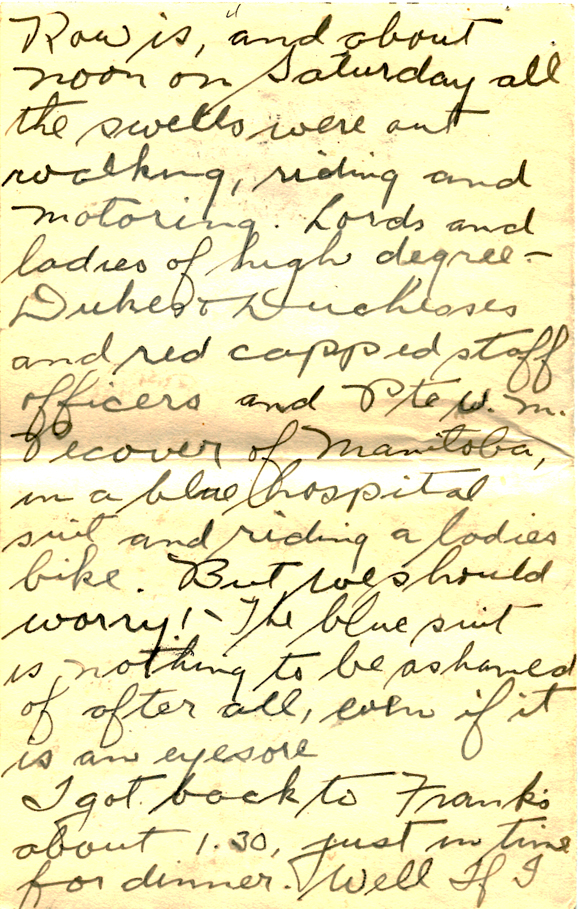 Row is," and about
noon on Saturday all
the swells were out
walking, riding and
motoring. Lords and
ladies of high degree -
Dukes & Duchesses
and red capped staff
officers and Pte W. M.
Pecover of Manitoba,
in a blue hospital
suit and riding a ladies
bike. But we should
worry! - The blue suit
is nothing to be ashamed
of after all, even if it
is an eyesore
I got back to Frank's
about 1.30, just in time
for dinner. Well If I